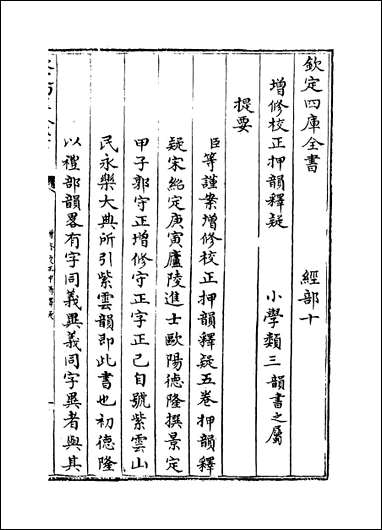 欽定四庫全書　　　經部十
增修校正押韻釋疑　　　小學類三 韻書之屬
提要
臣等謹案增修校正押韻釋疑五卷押韻釋
疑宋紹定庚寅廬陵進士歐陽德隆撰景定
甲子郭守正增修守正字正己自號紫雲山
民永樂大典所引紫雲韻即此書也初德隆
以禮部韻畧有字同義異義同字異者與其